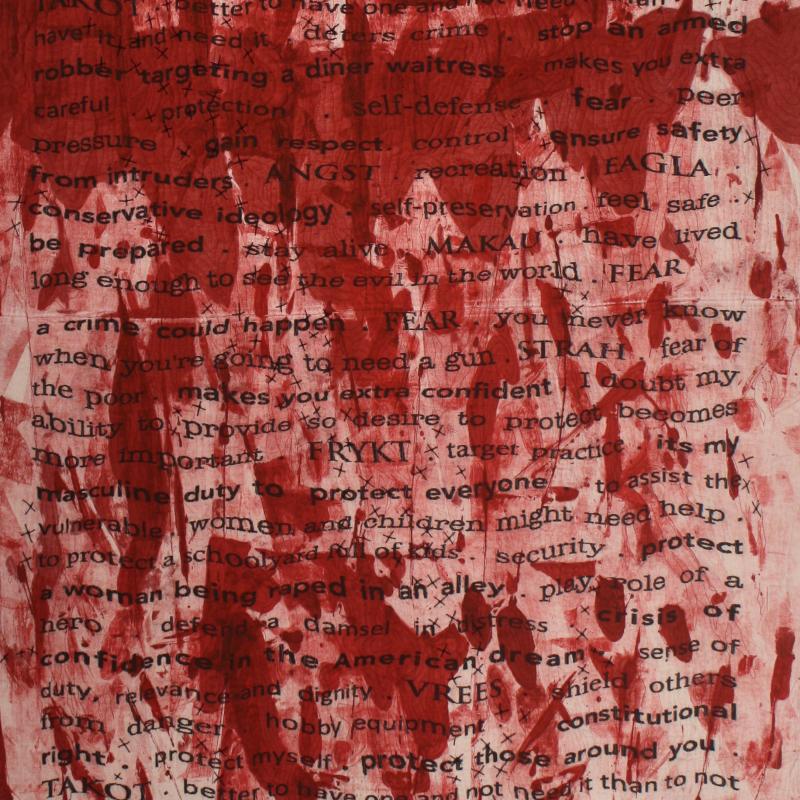 TAKOT . better to have one and not need it than to
have it and need it . deters crime . stop an armed
robber targeting a diner waitress . makes you extra
careful . protection . self-defense . fear . peer
pressure . gain respect . control . ensure safety
from intruders . ANGST . recreation . EAGLA .
conservative ideology . self-preservation . feel safe .
be prepared . stay alive . MAKAU . have lived
long enough to see the evil in the world . FEAR
a crime could happen . FEAR . you never know
when you're going to need a gun . STRAH . fear of
the poor . makes you extra confident . I doubt my
ability to provide so desire to protect becomes
more important . FRYKT . target practice . its my
masculine duty to protect everyone . to assist the
vulnerable . women and children might need help .
to protect a schoolyard full of kids . security . protect
a woman being raped in an alley . play role of a
hero . defend a damsel in distress . crisis of
confidence in the American dream . sense of
duty, relevance and dignity . VREES . shield others
from danger . hobby equipment . constitutional
right . protect myself . protect those around you .
TAKOT . better to have one and not need it than to not